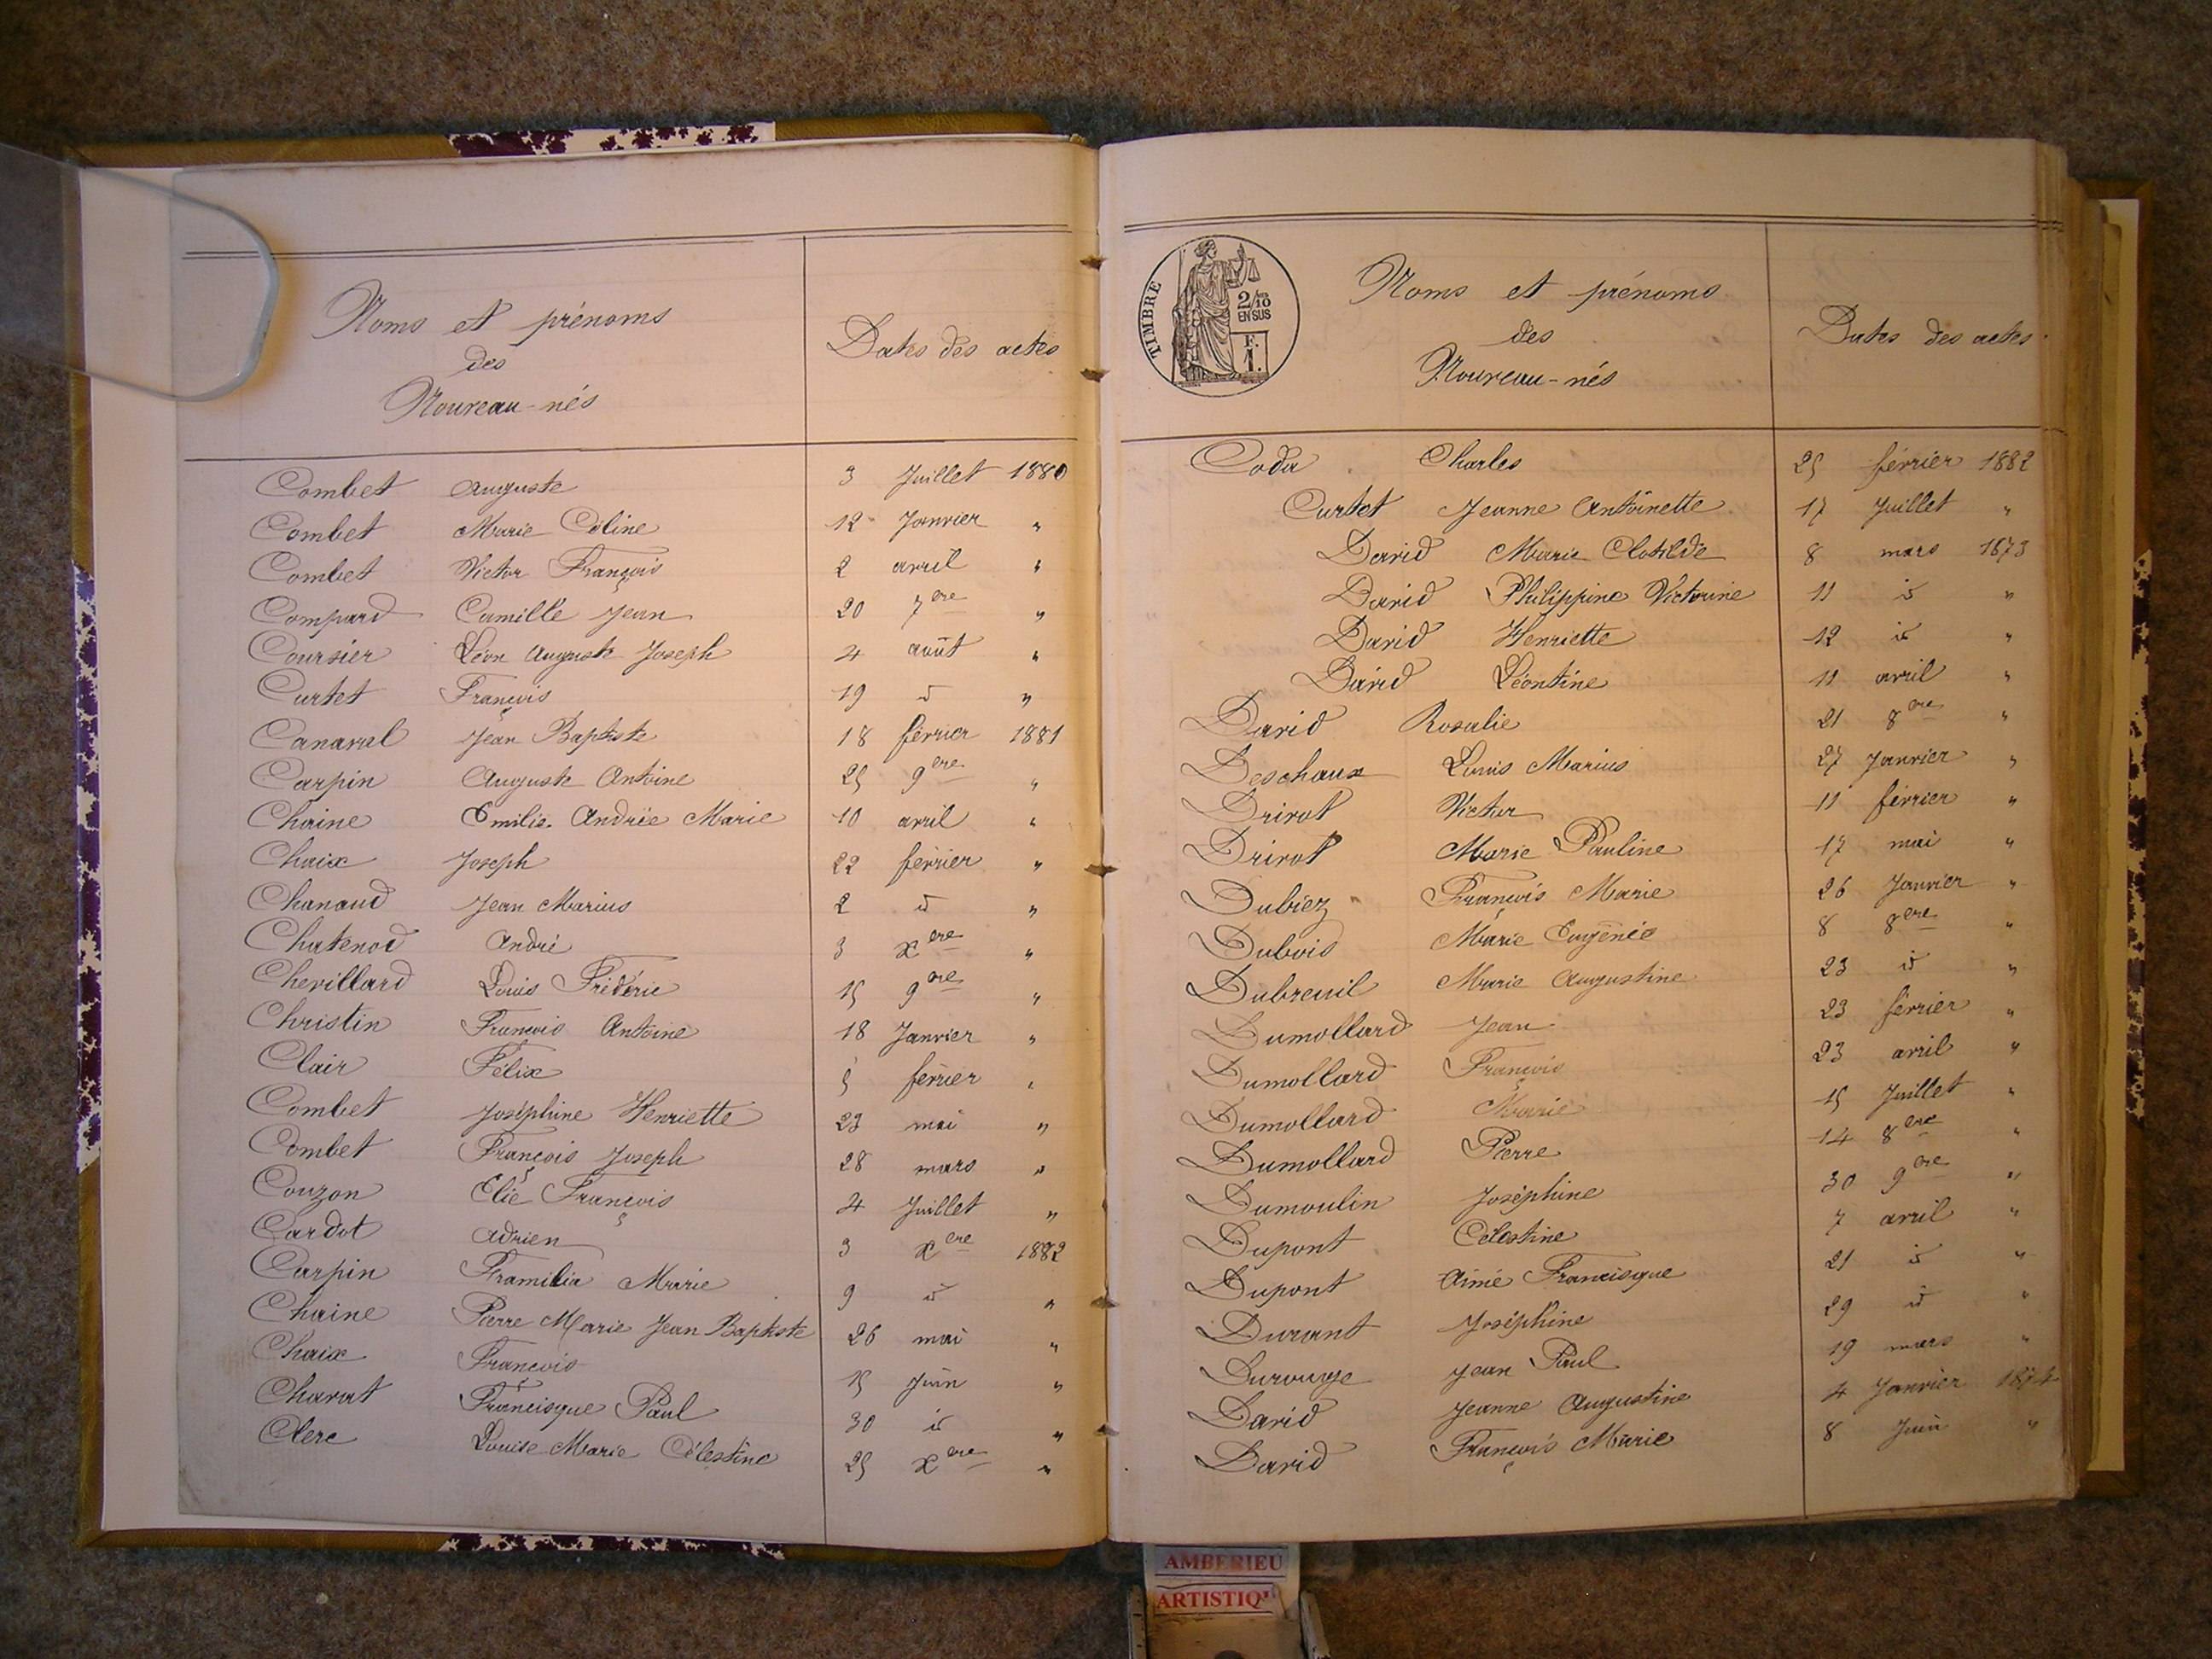 Noms et prénoms
des
Nouveau-nés
Dates des actes
Combet Auguste 3 Juillet 1880
Combet Marie Céline 12 Janvier "
Combet Victor François 2 avril "
Compard Camille Jean 20 7bre "
Coursier Léon Auguste Joseph 4 août "
Curtet François 19 d "
Canaval Jean Baptiste 18 février 1881
Carpin Auguste Antoine 25 9bre "
Chaine Emilie Andrée Marie 10 avril "
Chaix Joseph 22 février "
Chanaud Jean Marius 2 d "
Chatenod André 3 xbre "
Chevillard Louis Fréderic 15 9bre "
Christin François Antoine 18 Janvier "
Clair Félix 5 février "
Combet Joséphine Henriette 23 mai "
Combet François Joseph 28 mars "
Couzon Elie François 4 Juillet "
Cardot Adrien 3 xbre 1882
Carpin Framilia Marie 9 d "
Chaine Pierre Marie Jean Baptiste 26 mai "
Chaix François 15 Juin "
Charat Francisque Paul 30 d "
Clerc Louise Marie Célestine 25 xbre "
TIMBRE
2/10
EN SUS
F.
1.
Noms et prénoms
des
Nouveau-nés
Dates des actes
Coda Charles 25 février 1882
Curtet Jeanne Antoinette 17 Juillet "
David Marie Clotilde 8 mars 1873
David Philippine Victorine 11 d "
David Henriette 12 d "
David Léontine 11 avril "
David Rosalie 21 8bre "
Deschaux Louis Marius 27 Janvier "
Drivot Victor 11 février "
Drivot Marie Pauline 17 mai "
Dubiez François Marie 26 Janvier "
Dubois Marie Eugénie 8 8bre "
Dubreuil Marie Augustine 23 d "
Dumollard Jean 23 février "
Dumollard François 23 avril "
Dumollard Marie 15 Juillet "
Dumollard Pierre 14 8bre "
Dumoulin Joséphine 30 9bre "
Dupont Célestine 7 avril "
Dupont Aimé Francisque 21 d "
Durant Joséphine 29 d "
Durouge Jean Paul 19 mars "
David Jeanne Augustine 4 Janvier 1874
David François Marie 8 Juin "
AMBERIEU
ARTISTIQU